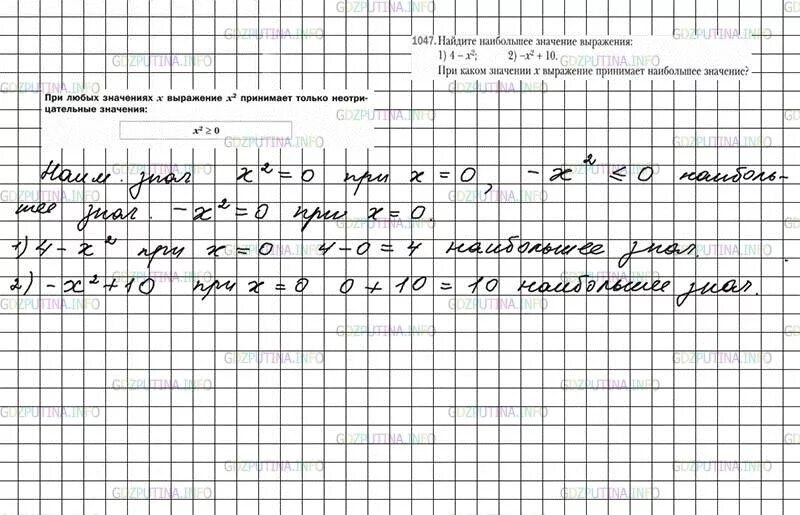 1047. Найдите наибольшее значение выражения:
1) 4 – x²; 2) –x² + 10.
При каком значении x выражение принимает наибольшее значение?
При любых значениях x выражение x² принимает только неотри-
цательные значения:
x² ≥ 0
Наим. знач x² = 0 при x = 0, -x² ≤ 0 наиболь-
шее знач. -x² = 0 при x = 0.
1) 4 - x² при x = 0 4 - 0 = 4 наибольшее знач.
2) -x² + 10 при x = 0 0 + 10 = 10 наибольшее знач.
GDZPUTINA.INFO